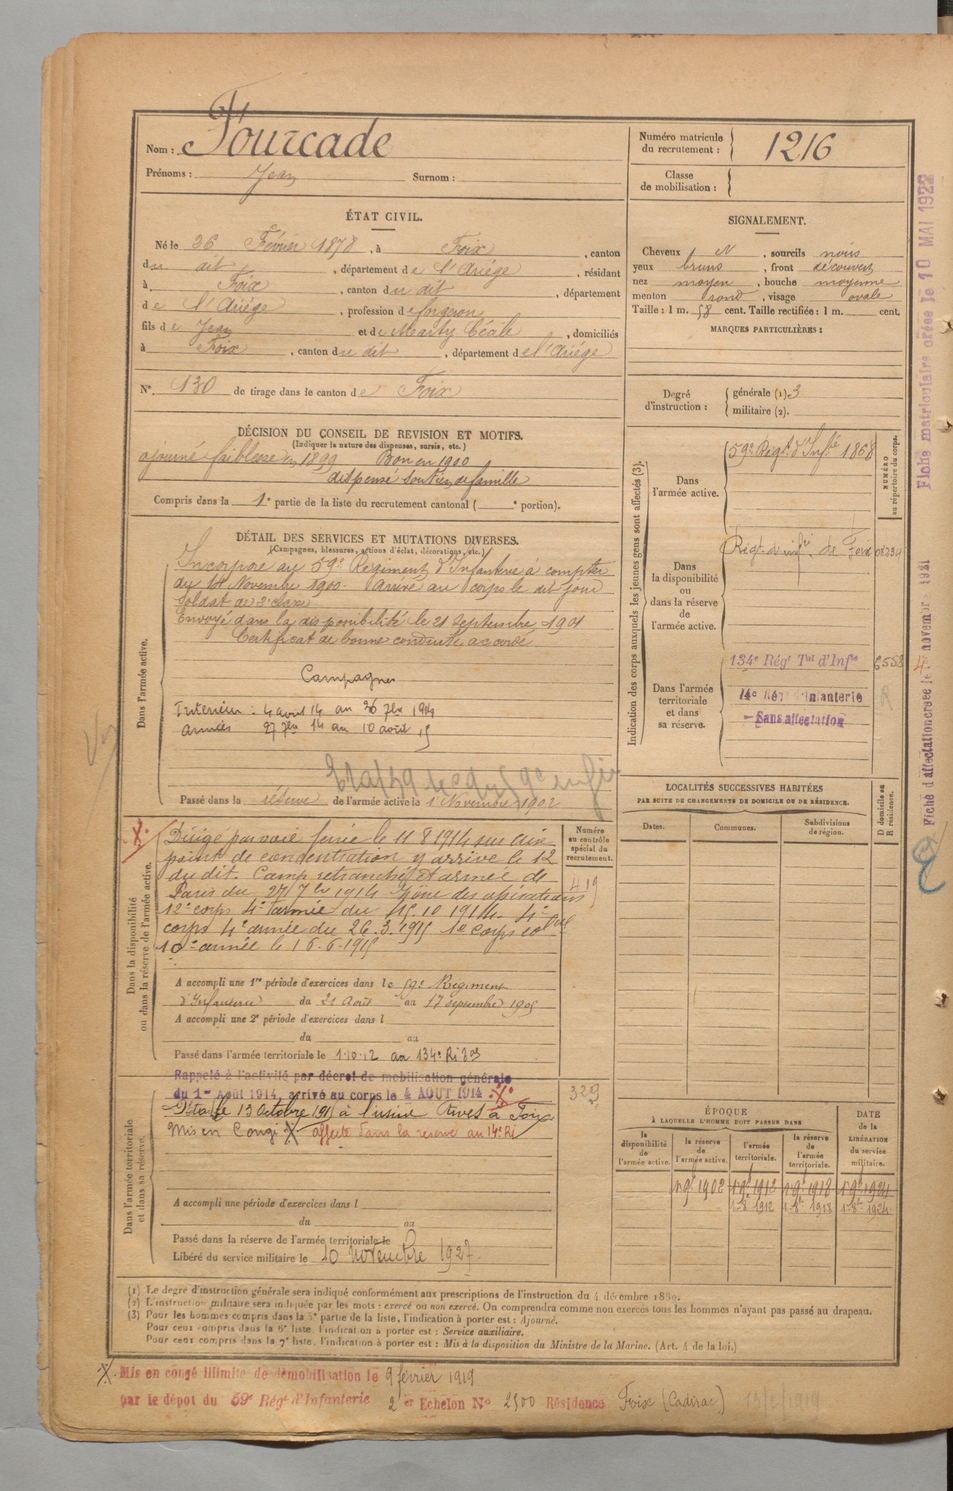 Nom : Fourcade
Prénoms : Jean Surnom :
Numéro matricule du recrutement : 1216
Classe de mobilisation :
ÉTAT CIVIL.
Né le 26 Février 1878, à Foix, canton
du dit, département de l'Ariège, résidant
à Foix, canton du dit, département
de l'Ariège, profession de forgeron
fils de Jean et de Marty Cécile, domiciliés
à Foix, canton du dit, département de l'Ariège
N° 130 de tirage dans le canton de Foix
SIGNALEMENT.
Cheveux N, sourcils noirs
yeux bruns, front découvert
nez moyen, bouche moyenne
menton rond, visage ovale
Taille : 1 m. 58 cent. Taille rectifiée : 1 m. cent.
MARQUES PARTICULIÈRES :
Degré d'instruction : générale (1) 3
militaire (2).
DÉCISION DU CONSEIL DE REVISION ET MOTIFS.
(Indiquer la nature des dispenses, sursis, etc.)
ajourné faiblesse en 1899 Bon en 1900
dispensé soutien de famille
Compris dans la 1e partie de la liste du recrutement cantonal ( e portion).
DÉTAIL DES SERVICES ET MUTATIONS DIVERSES.
(Campagnes, blessures, actions d'éclat, décorations, etc.)
Dans l'armée active.
Incorporé au 59e Régiment d'Infanterie à compter
du 14 Novembre 1900. Arrivé au corps le dit jour
Soldat de 2e classe
Envoyé dans la disponibilité le 21 Septembre 1901
Certificat de bonne conduite accordé.
Campagnes
Interieur : 4 aout 14 au 26 7bre 1914
armées 27 7bre 14 au 10 aout 15
Passé dans la réserve de l'armée active le 1 Novembre 1902
Indication des corps auxquels les jeunes gens sont affectés (3).
NUMÉRO au répertoire du corps.
Dans l'armée active.
59e Régt d'Infie 1868
Dans la disponibilité ou dans la réserve de l'armée active.
Régt d'infie de Foix
Dans l'armée territoriale et dans sa réserve.
134e Régt Tal d'Infie
14e Rt d'Infanterie
Sans affectation
LOCALITÉS SUCCESSIVES HABITÉES
PAR SUITE DE CHANGEMENTS DE DOMICILE OU DE RÉSIDENCE.
Dates. Communes. Subdivisions de région. D domicile ou R résidence.
Dans la disponibilité ou dans la réserve de l'armée active.
Numéro au contrôle spécial du recrutement.
419
Dirigé par voie ferrée le 11 8 1914 sur un
point de concentration y arrivé le 12
du dit. Camp retranché et armée de
Paris du 27 7bre 1914 Zône des opérations
12e corps 4e armée du 15.10 1914. 4e
corps 4e armée du 26.3.1915
10e armée le 16.6.1915
A accompli une 1re période d'exercices dans le 59e Régiment
d'Infanterie du 21 Août au 17 septembre 1905
A accompli une 2e période d'exercices dans l
du au
Passé dans l'armée territoriale le 1.10.12 au 134e
Dans l'armée territoriale et dans sa réserve.
323
Rappelé à l'activité par décret de mobilisation générale
du 1er Août 1914, arrivé au corps le 4 AOUT 1914
Détaché 13 Octobre 1915 à l'usine Rives à Foix
Mis en Congé X affecté dans la reserve au 14e Ri
A accompli une période d'exercices dans l
du au
Passé dans la réserve de l'armée territoriale le
Libéré du service militaire le 10 Novembre 1927.
ÉPOQUE
À LAQUELLE L'HOMME DOIT PASSER DANS
la disponibilité de l'armée active. la réserve de l'armée active. l'armée territoriale. la réserve de l'armée territoriale.
DATE de la LIBÉRATION du service militaire.
(1) Le degré d'instruction générale sera indiqué conformément aux prescriptions de l'instruction du 4 décembre 1889.
(2) L'instruction militaire sera indiquée par les mots : exercé ou non exercé. On comprendra comme non exercés tous les hommes n'ayant pas passé au drapeau.
(3) Pour les hommes compris dans la 5e partie de la liste, l'indication à porter est : Ajourné.
Pour ceux compris dans la 6e liste, l'indication à porter est : Service auxiliaire.
Pour ceux compris dans la 7e liste, l'indication à porter est : Mis à la disposition du Ministre de la Marine. (Art. 4 de la loi.)
X. Mis en congé illimité de démobilisation le 9 février 1919
par le dépôt du 59e Régt d'Infanterie 2e Echelon No 2500 Résidence Foix (Cadirac) 13/2/1919
Fiche matriculaire créée le 10 MAI 1922